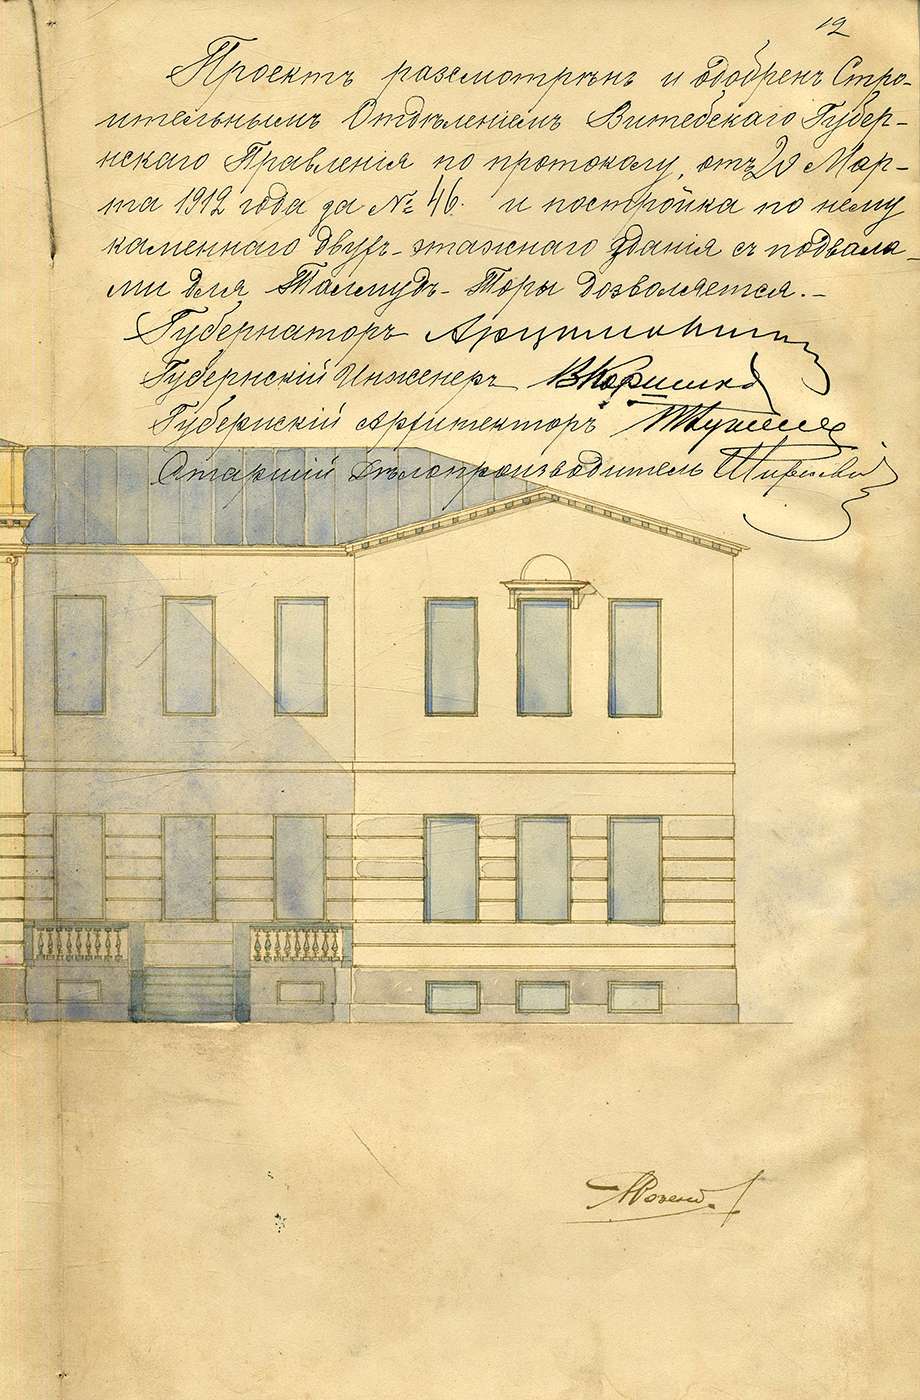 12
Проектъ разсмотрѣнъ и одобренъ Стро-
ительнымъ Отдѣленіемъ Витебскаго Губер-
нскаго Правленія по протоколу, отъ 20 Мар-
та 1912 года за № 46. и постройка по нему
каменнаго двухъ-этажнаго зданія съ подвала-
ми для Талмудъ-Торы дозволяется.-
Губернаторъ Арцимовичъ
Губернскій Инженеръ
Губернскій Архитекторъ
Старшій Дѣлопроизводитель